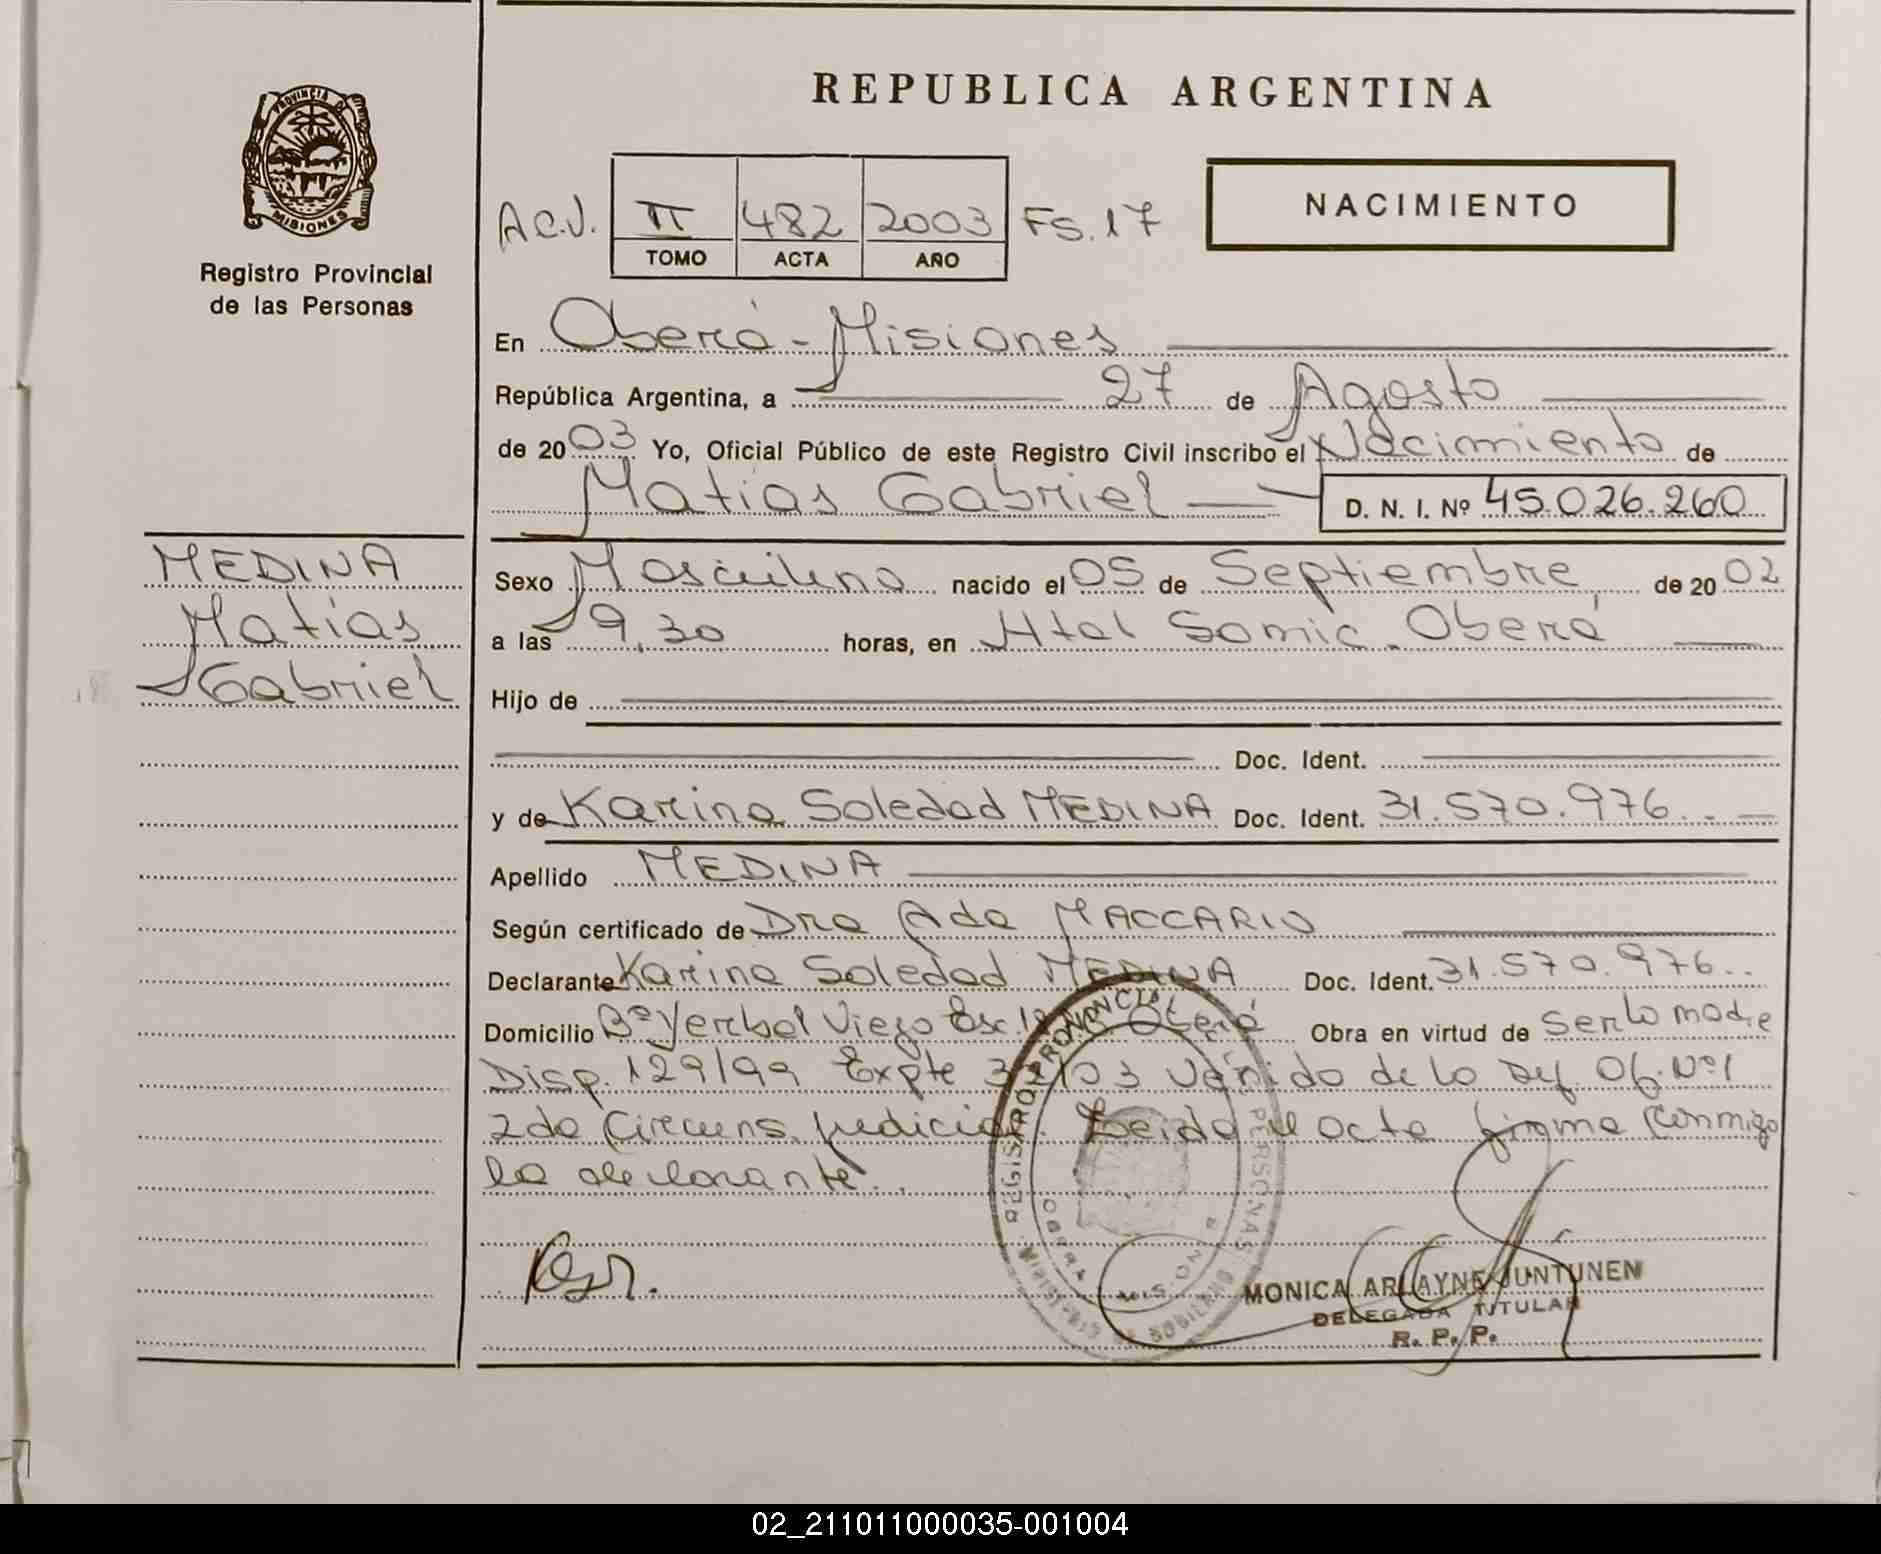 REPUBLICA ARGENTINA
PROVINCIA DE
MISIONES
Registro Provincial
de las Personas
NACIMIENTO
A.C.V. II 482 2003 FS.17
TOMO ACTA AÑO
En Oberá - Misiones
República Argentina, a 27 de Agosto
de 2003 Yo, Oficial Público de este Registro Civil inscribo el Nacimiento de
Matías Gabriel D. N. I. Nº 45.026.260
MEDINA
Matías
Gabriel
Sexo Masculino nacido el 05 de Septiembre de 2002
a las 9,30 horas, en Htal Samic. Oberá
Hijo de
Doc. Ident.
y de Karina Soledad MEDINA Doc. Ident. 31.570.976
Apellido MEDINA
Según certificado de Dra Ada MACCARIO
Declarante Karina Soledad MEDINA Doc. Ident. 31.570.976
Domicilio Bº Yerbal Viejo Esc. Oberá Obra en virtud de ser la madre
Disp. 129/99 Expte 32/03 Venido de la Def. Of. Nº1
2da Circuns. Judicial. Leida el acta firma conmigo
la declarante.
REGISTRO PROVINCIAL PERSONAS
OBERA MISIONES
MONICA ARLAYNE JUNTUNEN
DELEGADA TITULAR
R. P. P.
02_211011000035-001004